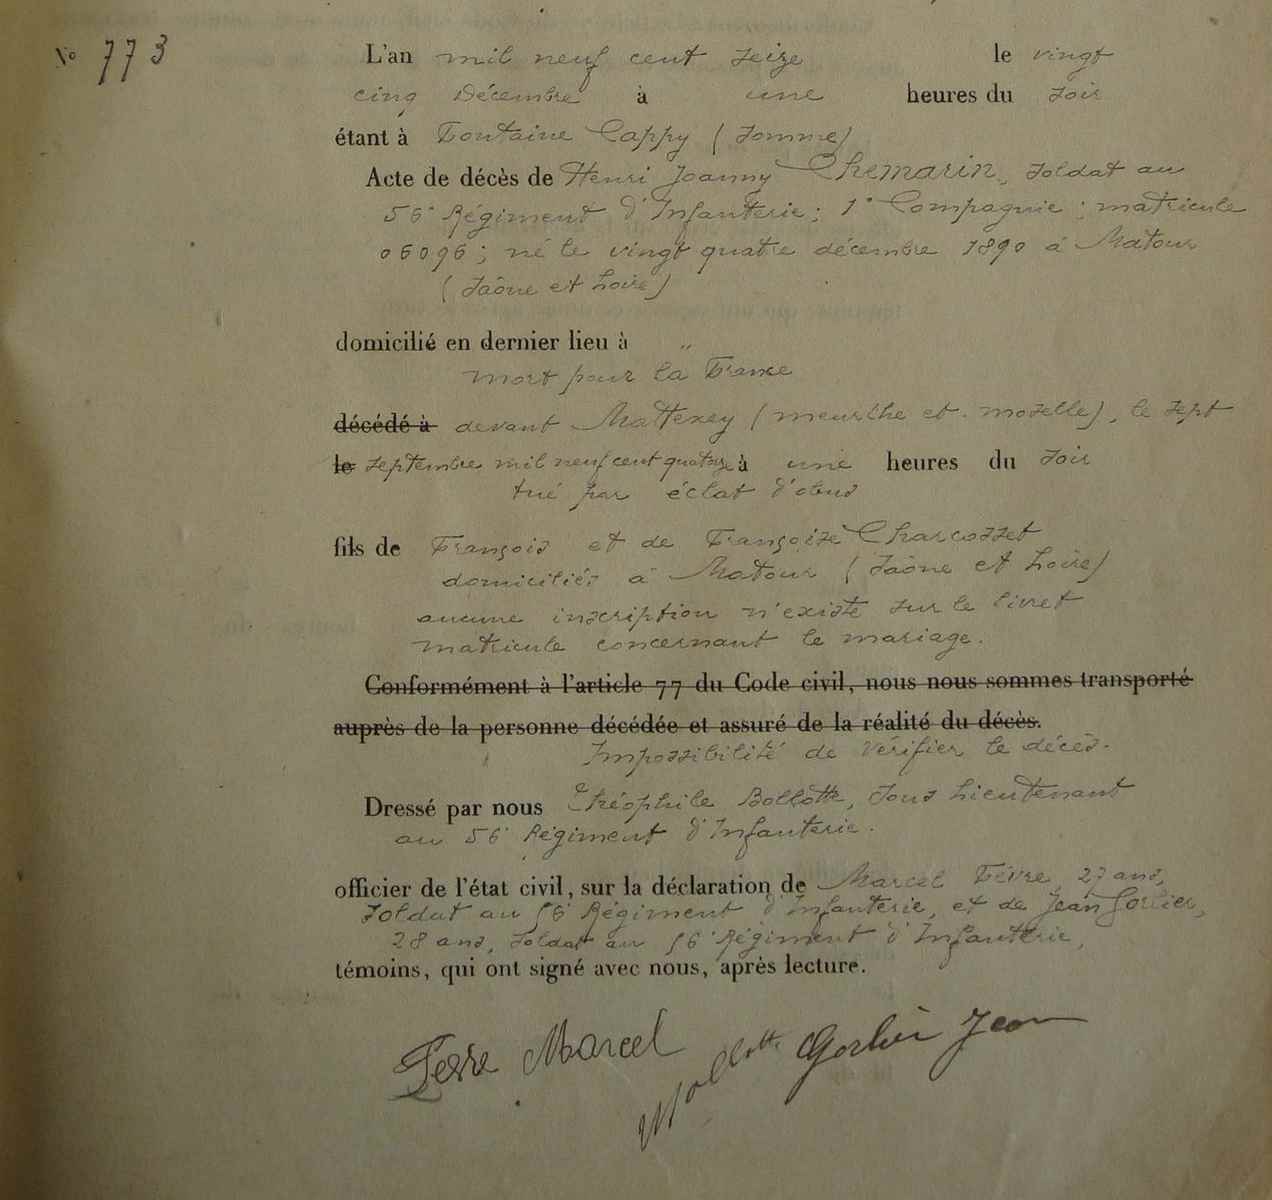 N° 773
L'an mil neuf cent seize le vingt
cinq Décembre à une heures du soir
étant à Fontaine Cappy (Somme)
Acte de décès de Henri Joanny Chemarin, soldat au
56e Régiment d'Infanterie; 1e Compagnie; matricule
06096; né le vingt quatre décembre 1890 à Matour
(Saône et Loire)
domicilié en dernier lieu à "
mort pour la France
décédé à devant Mattexey (meurthe et moselle), le sept
le septembre mil neuf cent quatorze à une heures du soir
tué par éclat d'obus
fils de François et de Françoise Charcosset
domiciliés à Matour (Saône et Loire)
aucune inscription n'existe sur le livret
matricule concernant le mariage.
Conformément à l'article 77 du Code civil, nous nous sommes transporté
auprès de la personne décédée et assuré de la réalité du décès.
Impossibilité de vérifier le décès.
Dressé par nous Théophile Bollotte, Sous Lieutenant
au 56e Régiment d'Infanterie.
officier de l'état civil, sur la déclaration de Marcel Fèvre, 27 ans,
soldat au 56e Régiment d'Infanterie, et de Jean Gorlier,
28 ans, soldat au 56e Régiment d'Infanterie,
témoins, qui ont signé avec nous, après lecture.
Fèvre Marcel Bollotte Gorlier Jean